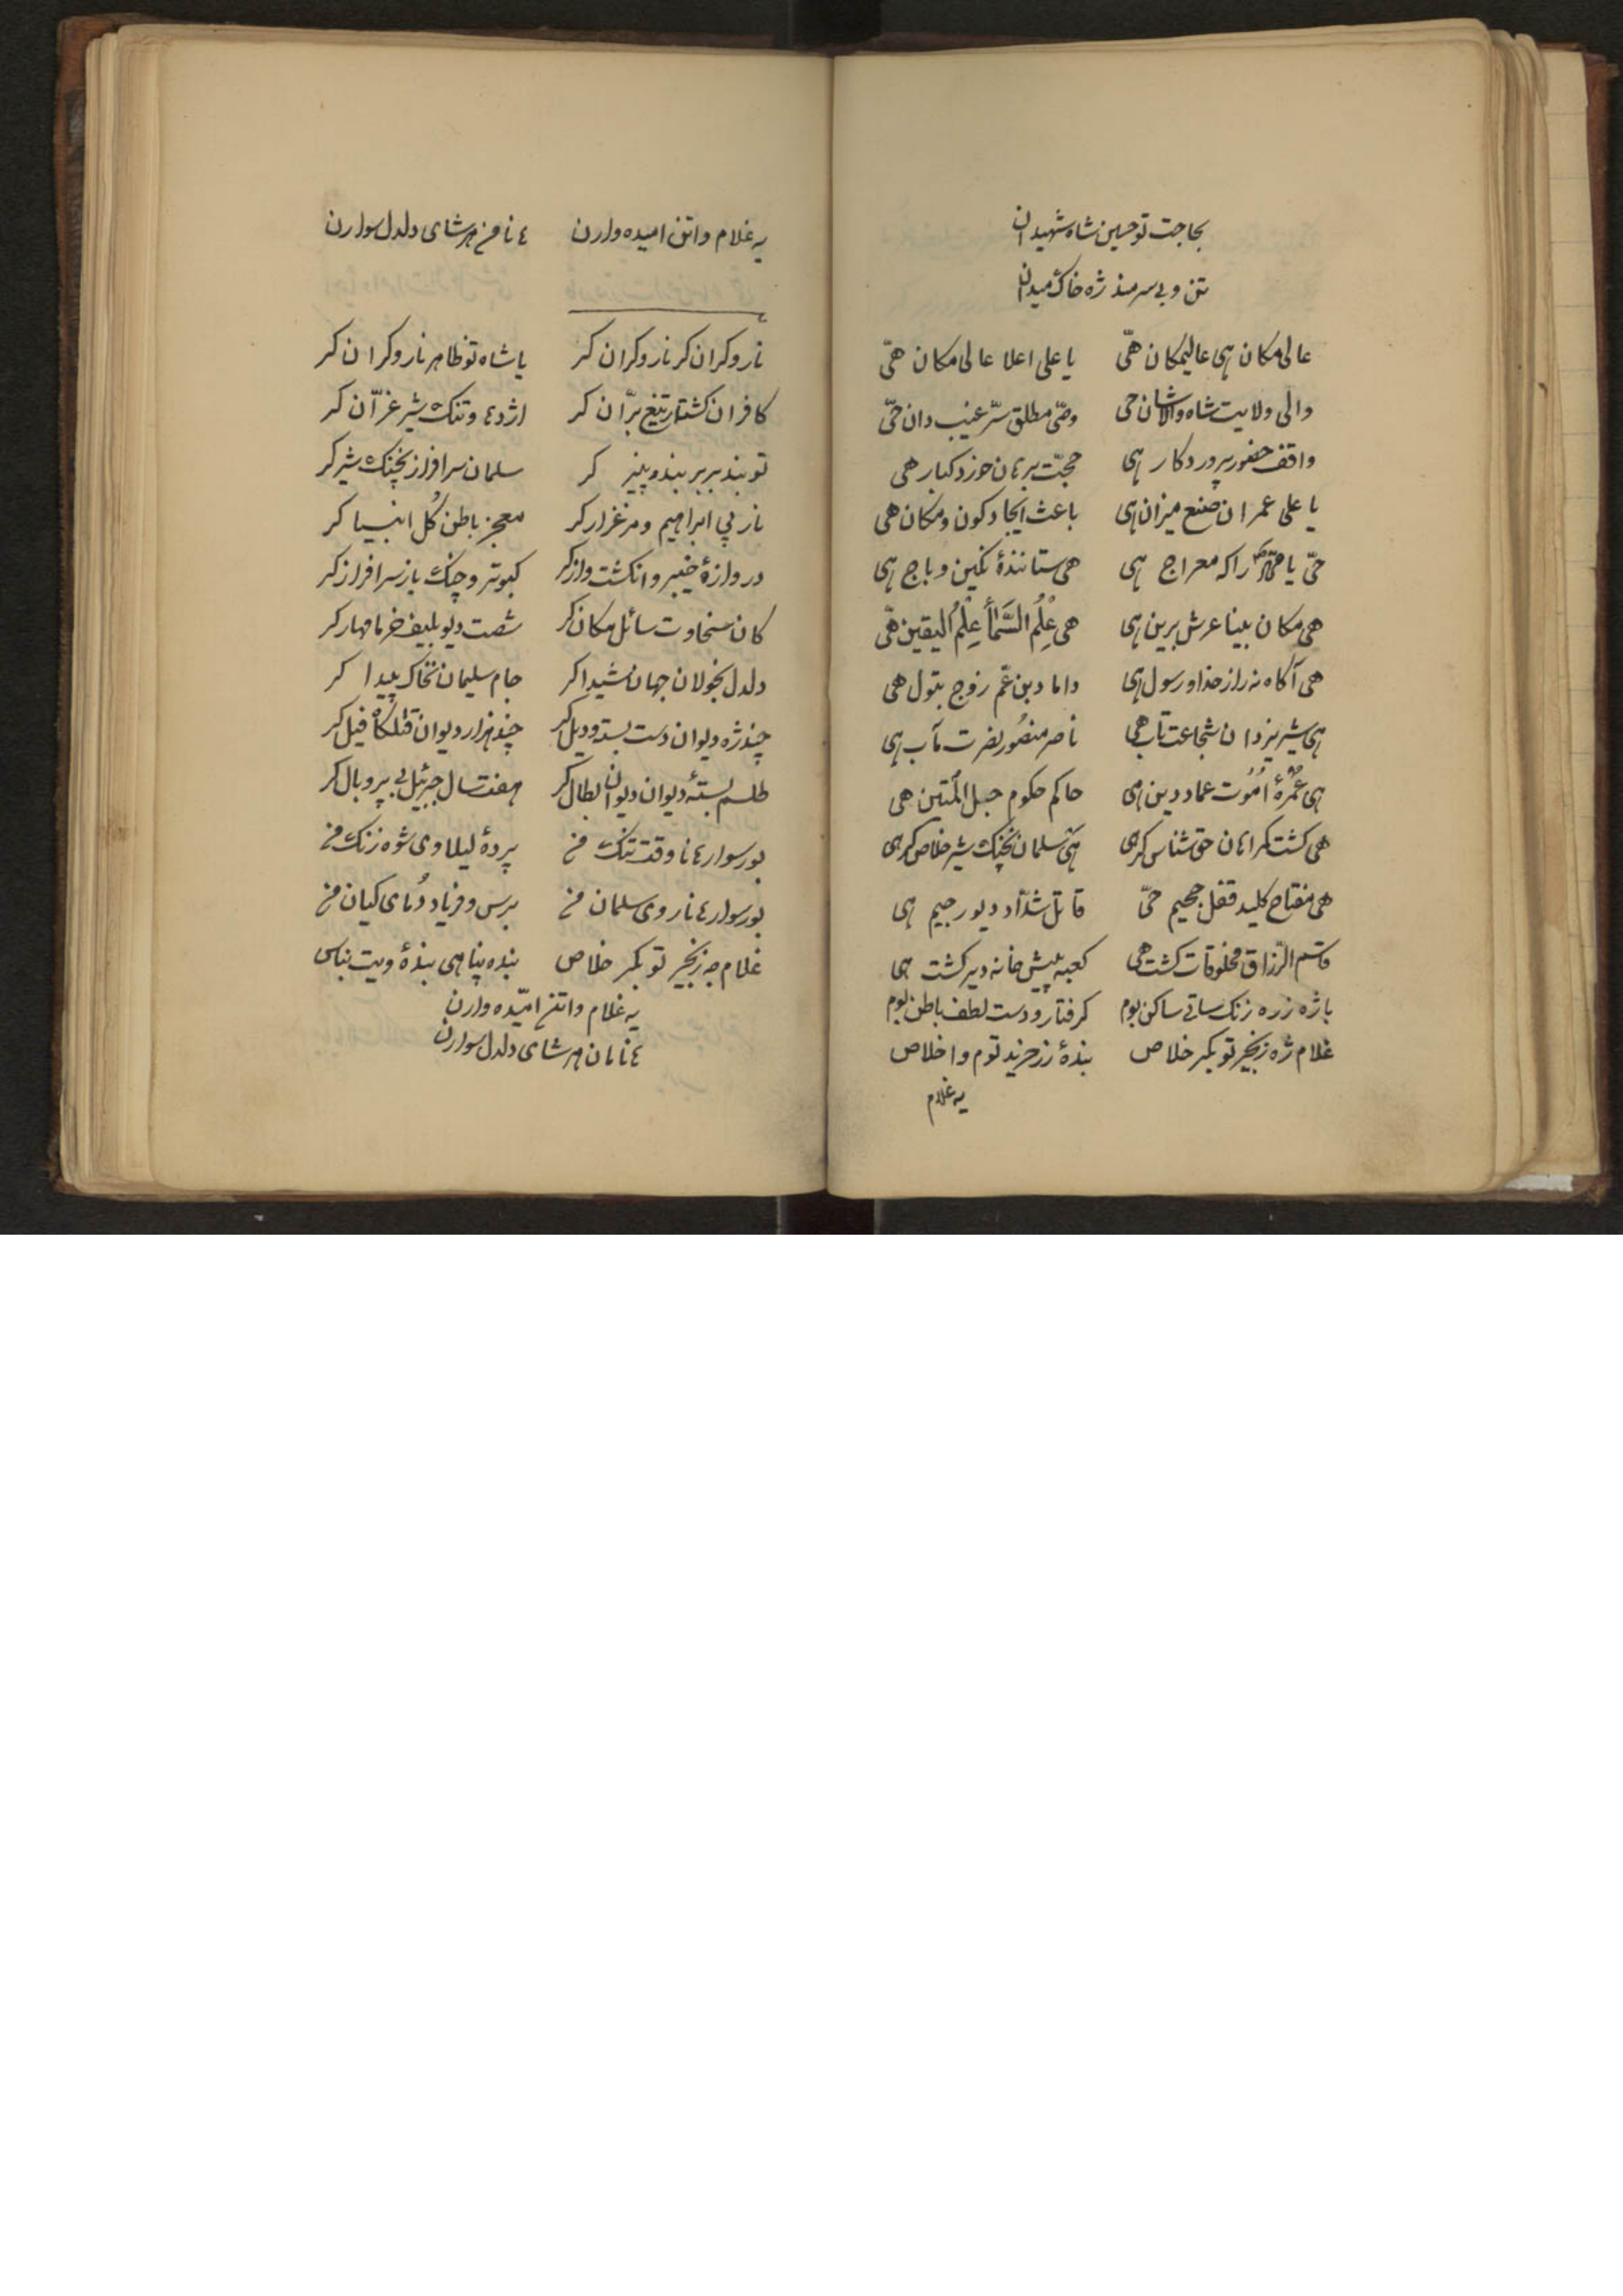 بحاجت تو حسین شاه شهیدان
تن و بی سر مند ژه خاک میدان
عالی مکان هی عالیمکان هیّ یا علی اعلا عالی مکان هیّ
والی ولایت شاه والاشان حی وصّی مطلق سرّ غیب دان حیّ
واقف حضور پروردکار هی حجّت برهان خورد کبار هی
یا علی عمران صنع میزان هی باعث ایجاد کون و مکان هی
حیّ یا محمّد راکه معراج هی هی ستانندهٔ نکین و باج هی
هی مکان بینا عرش برین هی هی عِلْمُ السَّمٰأ عِلْمُ الیقین هیّ
هی آکاه نه راز خدا و رسول هی داماد بن عّم زوج بتول هی
هی شیر یزدان شجاعت تاب هی ناصر منصُور نصرت مآب هی
هی عُمْرهٔ اُمُوت عماد دین هی حاکم حکوم حبل المُتین هی
هی کشت کمراهان حق شناس کر هی هیّ سلمان نچنک شیر خلاص کر هی
هی مفتاح کلید قفل جحیم حیّ قاتل شدّاد دیو رجیم هی
قاسم الرّزاق مخلوقات کشت هی کعبه پیش خانه دیر کشت هی
باژه زره زنک ساتی ساکن بوم کرفتار و دست لطف باطن بوم
غلام ژه زنجیر تو بکر خلاص بندهٔ زر خرید توم و اخلاص
یه غلام
یه غلام واتن امیده وارن ٤ نا من هر شای دلدل سوارن
نارو کران کر نارو کران کر یا شاه تو ظاهر نارو کران کر
کافران کشتار تیغ برّان کر اژدها و تنک شیر غرّان کر
تو بند بربر بنده پنیز کر سلمان سرافراز نچنک شیر کر
نار پی ابراهیم و مرغزار کر معجز باطن کُل انبیا کر
دروازهٔ خیبر و انکشت واز کر کبوتر و چنک باز سرافراز کر
کان سخاوت سائل مکان کر شصت دیو بلیف خرما مهار کر
دلدل بخولان جهان شیدا کر جام سلیمان نخاک پیدا کر
چند ژه دیوان دست بسته و دیل کر چند هزار دیوان قتلکاه فیل کر
طلسم بستهٔ دیوان دیوان بطال کر هفت سال جبرئیل بی پر و بال کر
بور سوار ٤ نا وقت تنک من پردهٔ لیلاوی شوه زنک من
بور سوار ٤ نا روی سلمان من برس و فریاد دُمای کیان من
غلام جه زنجیر تو بکر خلاص بنده پناهی بندهٔ ویت بناس
یه غلام واتن امیّده وارن
٤ نامان هر شای دلدل سوارن